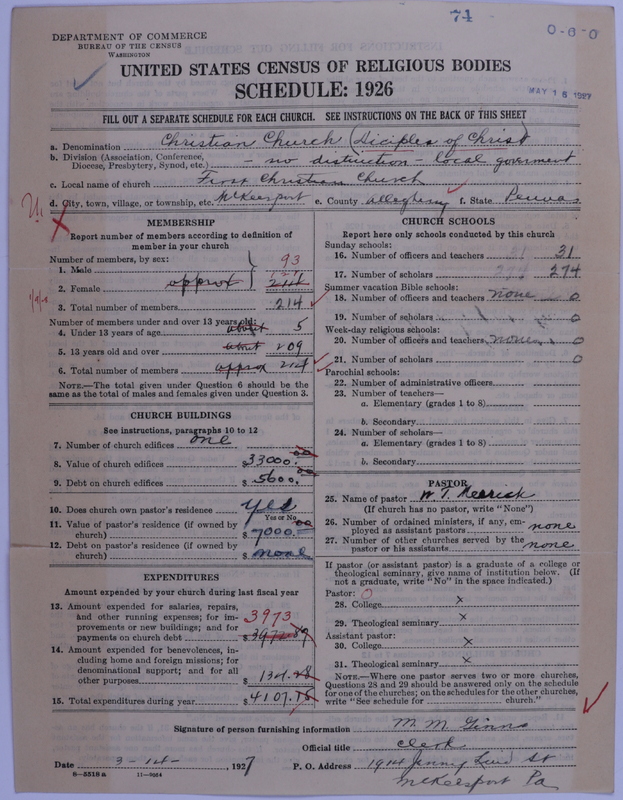 74
0-6-0
DEPARTMENT OF COMMERCE
BUREAU OF THE CENSUS
WASHINGTON
UNITED STATES CENSUS OF RELIGIOUS BODIES
SCHEDULE: 1926
MAY 16 1927
FILL OUT A SEPARATE SCHEDULE FOR EACH CHURCH. SEE INSTRUCTIONS ON THE BACK OF THIS SHEET
a. Denomination Christian Church (Diciples of Christ
b. Division (Association, Conference, Diocese, Presbytery, Synod, etc.) - no distinction - Local goverment
c. Local name of church First Christian Church
d. City, town, village, or township, etc. McKeesport e. County Allegheny f. State Penna
MEMBERSHIP
Report number of members according to definition of member in your church
Number of members, by sex:
1. Male 93
2. Female approx 121 214
3. Total number of members 214
Number of members under and over 13 years old:
4. Under 13 years of age about 5
5. 13 years old and over about 209
6. Total number of members approx 214
NOTE.—The total given under Question 6 should be the same as the total of males and females given under Question 3.
CHURCH BUILDINGS
See instructions, paragraphs 10 to 12
7. Number of church edifices one
8. Value of church edifices $33000.00
9. Debt on church edifices $5600.00
10. Does church own pastor's residence yes
Yes or No
11. Value of pastor's residence (if owned by church) $7000.00
12. Debt on pastor's residence (if owned by church) $none
EXPENDITURES
Amount expended by your church during last fiscal year
13. Amount expended for salaries, repairs, and other running expenses; for improvements or new buildings; and for payments on church debt 3973 $3972.89
14. Amount expended for benevolences, including home and foreign missions; for denominational support; and for all other purposes 134.
15. Total expenditures during year $4107.
CHURCH SCHOOLS
Report here only schools conducted by this church
Sunday schools:
16. Number of officers and teachers 31
17. Number of scholars 274
Summer vacation Bible schools:
18. Number of officers and teachers none 0
19. Number of scholars 0
Week-day religious schools:
20. Number of officers and teachers none 0
21. Number of scholars 0
Parochial schools:
22. Number of administrative officers
23. Number of teachers—
a. Elementary (grades 1 to 8)
b. Secondary
24. Number of scholars—
a. Elementary (grades 1 to 8)
b. Secondary
PASTOR
25. Name of pastor W T
(If church has no pastor, write "None")
26. Number of ordained ministers, if any, employed as assistant pastors none
27. Number of other churches served by the pastor or his assistants none
If pastor (or assistant pastor) is a graduate of a college or theological seminary, give name of institution below. (If not a graduate, write "No" in the space indicated.)
Pastor: 0
28. College x
29. Theological seminary x
Assistant pastor:
30. College x
31. Theological seminary x
NOTE.—Where one pastor serves two or more churches, Questions 28 and 29 should be answered only on the schedule for one of the churches; on the schedules for the other churches, write "See schedule for ........ church."
Signature of person furnishing information M. M. Ginns
Official title Clerk
Date 3-1st-, 1927 P. O. Address 1914 Jenny Lind St
8-5518 a 11-9064 McKeesport Pa